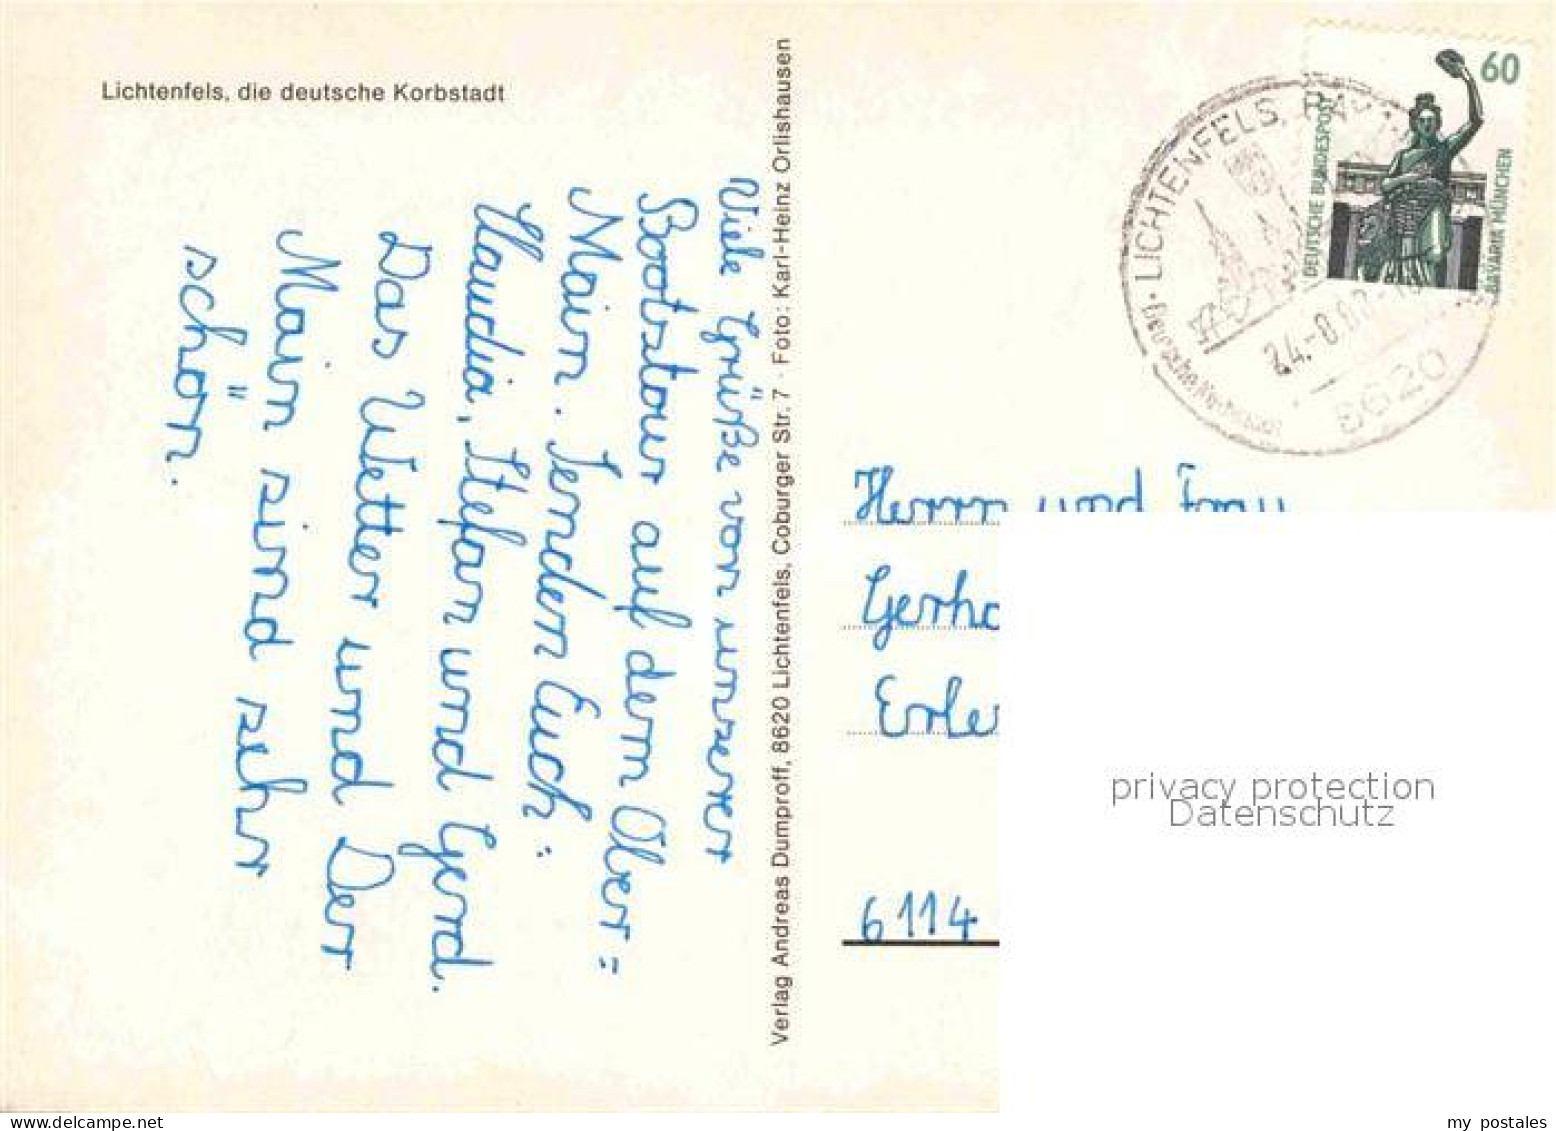 Lichtenfels, die deutsche Korbstadt
Viele Grüße von unserer
Bootstour auf dem Ober=
Main. Senden Euch:
Claudia, Stefan und Gerd.
Das Wetter und Der
Main sind sehr
schön.
Verlag Andreas Dumproff, 8620 Lichtenfels, Coburger Str. 7 · Foto: Karl-Heinz Orlishausen
60
DEUTSCHE BUNDESPOST
BAVARIA MÜNCHEN
LICHTENFELS, BAY
24.-8.88
8620
Herrn und Frau
Gerha
Erle
6114
privacy protection
Datenschutz
my postales